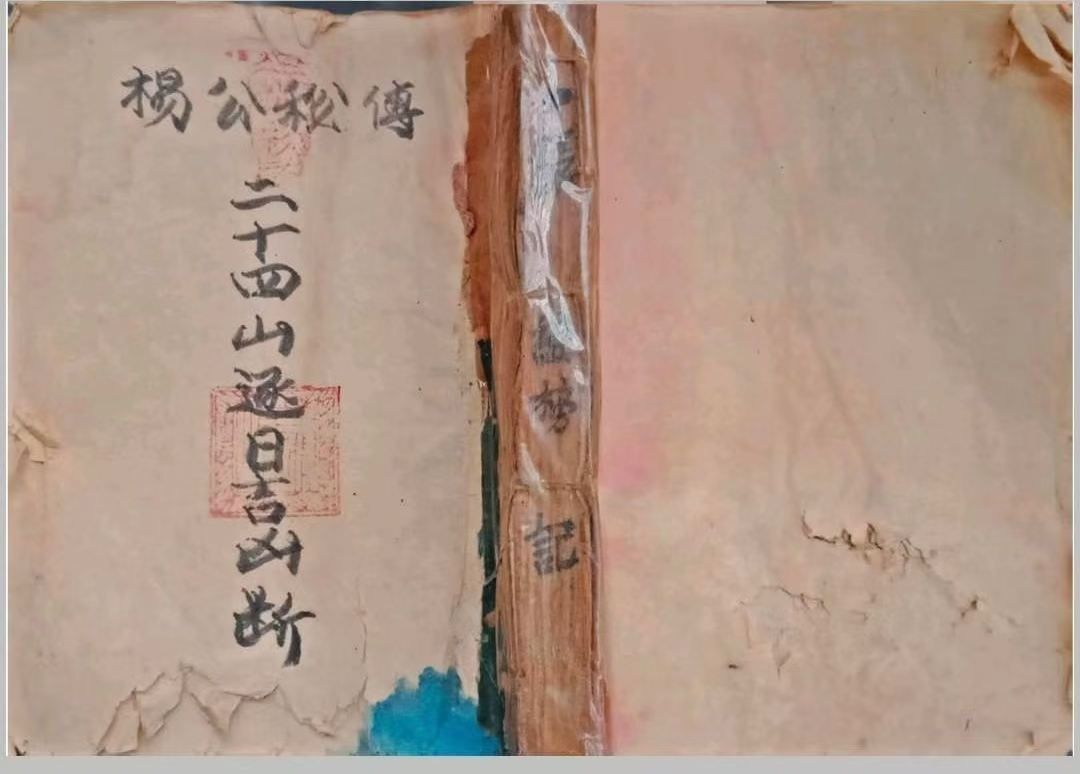 楊公秘傳
二十四山逐日吉凶断
記